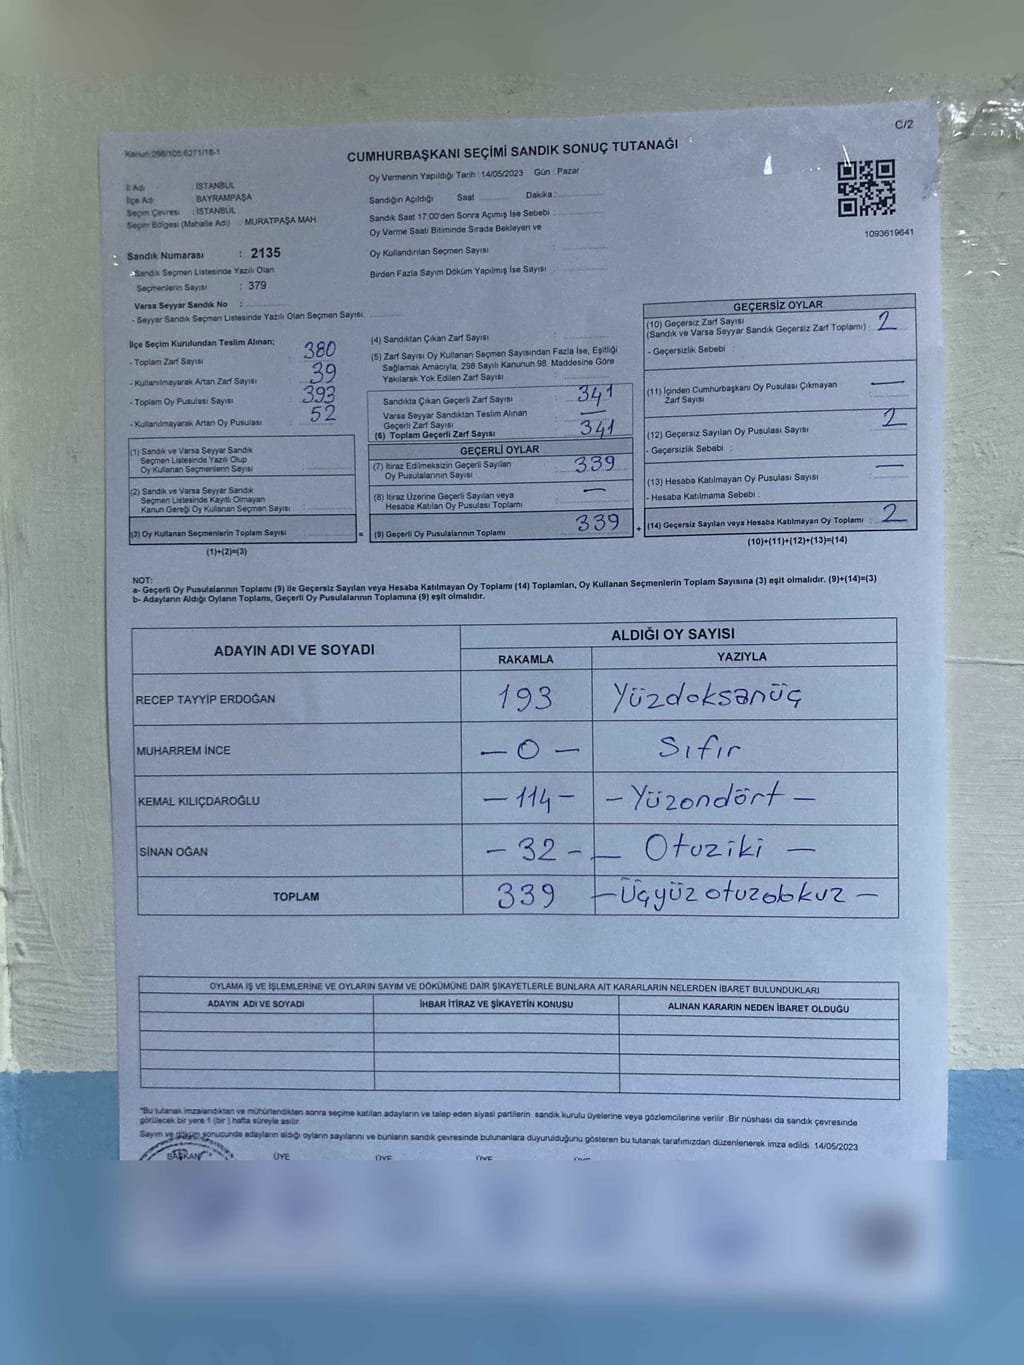 C/2
Kanun:298/105,6271/18-1
CUMHURBAŞKANI SEÇİMİ SANDIK SONUÇ TUTANAĞI
İl Adı : İSTANBUL
İlçe Adı : BAYRAMPAŞA
Seçim Çevresi : İSTANBUL
Seçim Bölgesi (Mahalle Adı) : MURATPAŞA MAH.
Sandık Numarası : 2135
Sandık Seçmen Listesinde Yazılı Olan
Seçmenlerin Sayısı : 379
Varsa Seyyar Sandık No :
- Seyyar Sandık Seçmen Listesinde Yazılı Olan Seçmen Sayısı:
Oy Vermenin Yapıldığı Tarih : 14/05/2023 Gün : Pazar
Sandığın Açıldığı Saat Dakika :
Sandık Saat 17:00'den Sonra Açımış İse Sebebi :
Oy Verme Saati Bitiminde Sırada Bekleyen ve
Oy Kullandırılan Seçmen Sayısı :
Birden Fazla Sayım Döküm Yapılmış İse Sayısı :
1093619641
İlçe Seçim Kurulundan Teslim Alınan;
- Toplam Zarf Sayısı : 380
- Kullanılmayarak Artan Zarf Sayısı : 39
- Toplam Oy Pusulası Sayısı : 393
- Kullanılmayarak Artan Oy Pusulası : 52
(1) Sandık ve Varsa Seyyar Sandık
Seçmen Listesinde Yazılı Olup
Oy Kullanan Seçmenlerin Sayısı :
(2) Sandık ve Varsa Seyyar Sandık
Seçmen Listesinde Kayıtlı Olmayan
Kanun Gereği Oy Kullanan Seçmen Sayısı :
(3) Oy Kullanan Seçmenlerin Toplam Sayısı : =
(1)+(2)=(3)
(4) Sandıktan Çıkan Zarf Sayısı :
(5) Zarf Sayısı Oy Kullanan Seçmen Sayısından Fazla İse, Eşitliği
Sağlamak Amacıyla; 298 Sayılı Kanunun 98. Maddesine Göre
Yakılarak Yok Edilen Zarf Sayısı :
Sandıkta Çıkan Geçerli Zarf Sayısı : 341
Varsa Seyyar Sandıktan Teslim Alınan
Geçerli Zarf Sayısı : —
(6) Toplam Geçerli Zarf Sayısı : 341
GEÇERLİ OYLAR
(7) İtiraz Edilmeksizin Geçerli Sayılan
Oy Pusulalarının Sayısı : 339
(8) İtiraz Üzerine Geçerli Sayılan veya
Hesaba Katılan Oy Pusulası Toplamı : —
(9) Geçerli Oy Pusulalarının Toplamı 339 +
GEÇERSİZ OYLAR
(10) Geçersiz Zarf Sayısı
(Sandık ve Varsa Seyyar Sandık Geçersiz Zarf Toplamı) : 2
- Geçersizlik Sebebi :
(11) İçinden Cumhurbaşkanı Oy Pusulası Çıkmayan
Zarf Sayısı : —
(12) Geçersiz Sayılan Oy Pusulası Sayısı : 2
- Geçersizlik Sebebi :
(13) Hesaba Katılmayan Oy Pusulası Sayısı : —
- Hesaba Katılmama Sebebi :
(14) Geçersiz Sayılan veya Hesaba Katılmayan Oy Toplamı : 2
(10)+(11)+(12)+(13)=(14)
NOT:
a- Geçerli Oy Pusulalarının Toplamı (9) ile Geçersiz Sayılan veya Hesaba Katılmayan Oy Toplamı (14) Toplamları, Oy Kullanan Seçmenlerin Toplam Sayısına (3) eşit olmalıdır. (9)+(14)=(3)
b- Adayların Aldığı Oyların Toplamı, Geçerli Oy Pusulalarının Toplamına (9) eşit olmalıdır.
ADAYIN ADI VE SOYADI ALDIĞI OY SAYISI
RAKAMLA YAZIYLA
RECEP TAYYİP ERDOĞAN 193 Yüzdoksanüç
MUHARREM İNCE — 0 — Sıfır
KEMAL KILIÇDAROĞLU — 114 — — Yüzondört —
SİNAN OĞAN — 32 — — Otuziki —
TOPLAM 339 — Üçyüzotuzdokuz —
OYLAMA İŞ VE İŞLEMLERİNE VE OYLARIN SAYIM VE DÖKÜMÜNE DAİR ŞİKAYETLERLE BUNLARA AİT KARARLARIN NELERDEN İBARET BULUNDUKLARI
ADAYIN ADI VE SOYADI İHBAR İTİRAZ VE ŞİKAYETİN KONUSU ALINAN KARARIN NEDEN İBARET OLDUĞU
*Bu tutanak imzalandıktan ve mühürlendikten sonra seçime katılan adayların ve talep eden siyasi partilerin sandık kurulu üyelerine veya gözlemcilerine verilir. Bir nüshası da sandık çevresinde
görülecek bir yere 1 (bir) hafta süreyle asılır.
Sayım ve döküm sonucunda adayların aldığı oyların sayılarını ve bunların sandık çevresinde bulunanlara duyurulduğunu gösteren bu tutanak tarafımızdan düzenlenerek imza edildi. 14/05/2023
BAŞKAN ÜYE ÜYE ÜYE ÜYE